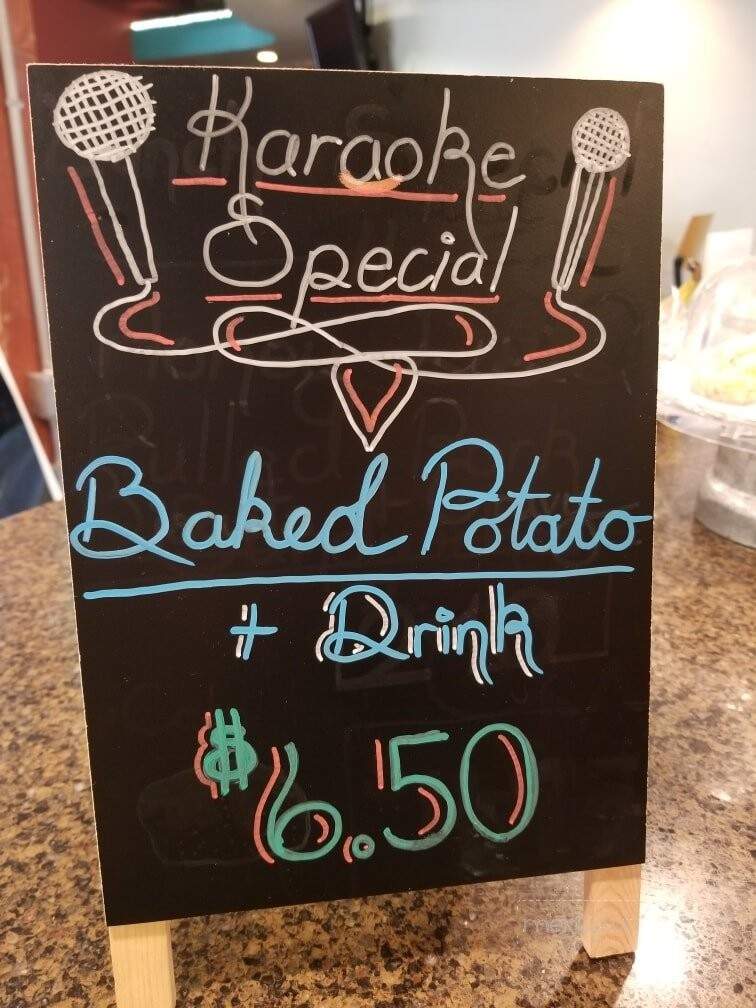 Karaoke
Special
Baked Potato
+ Drink
$6.50